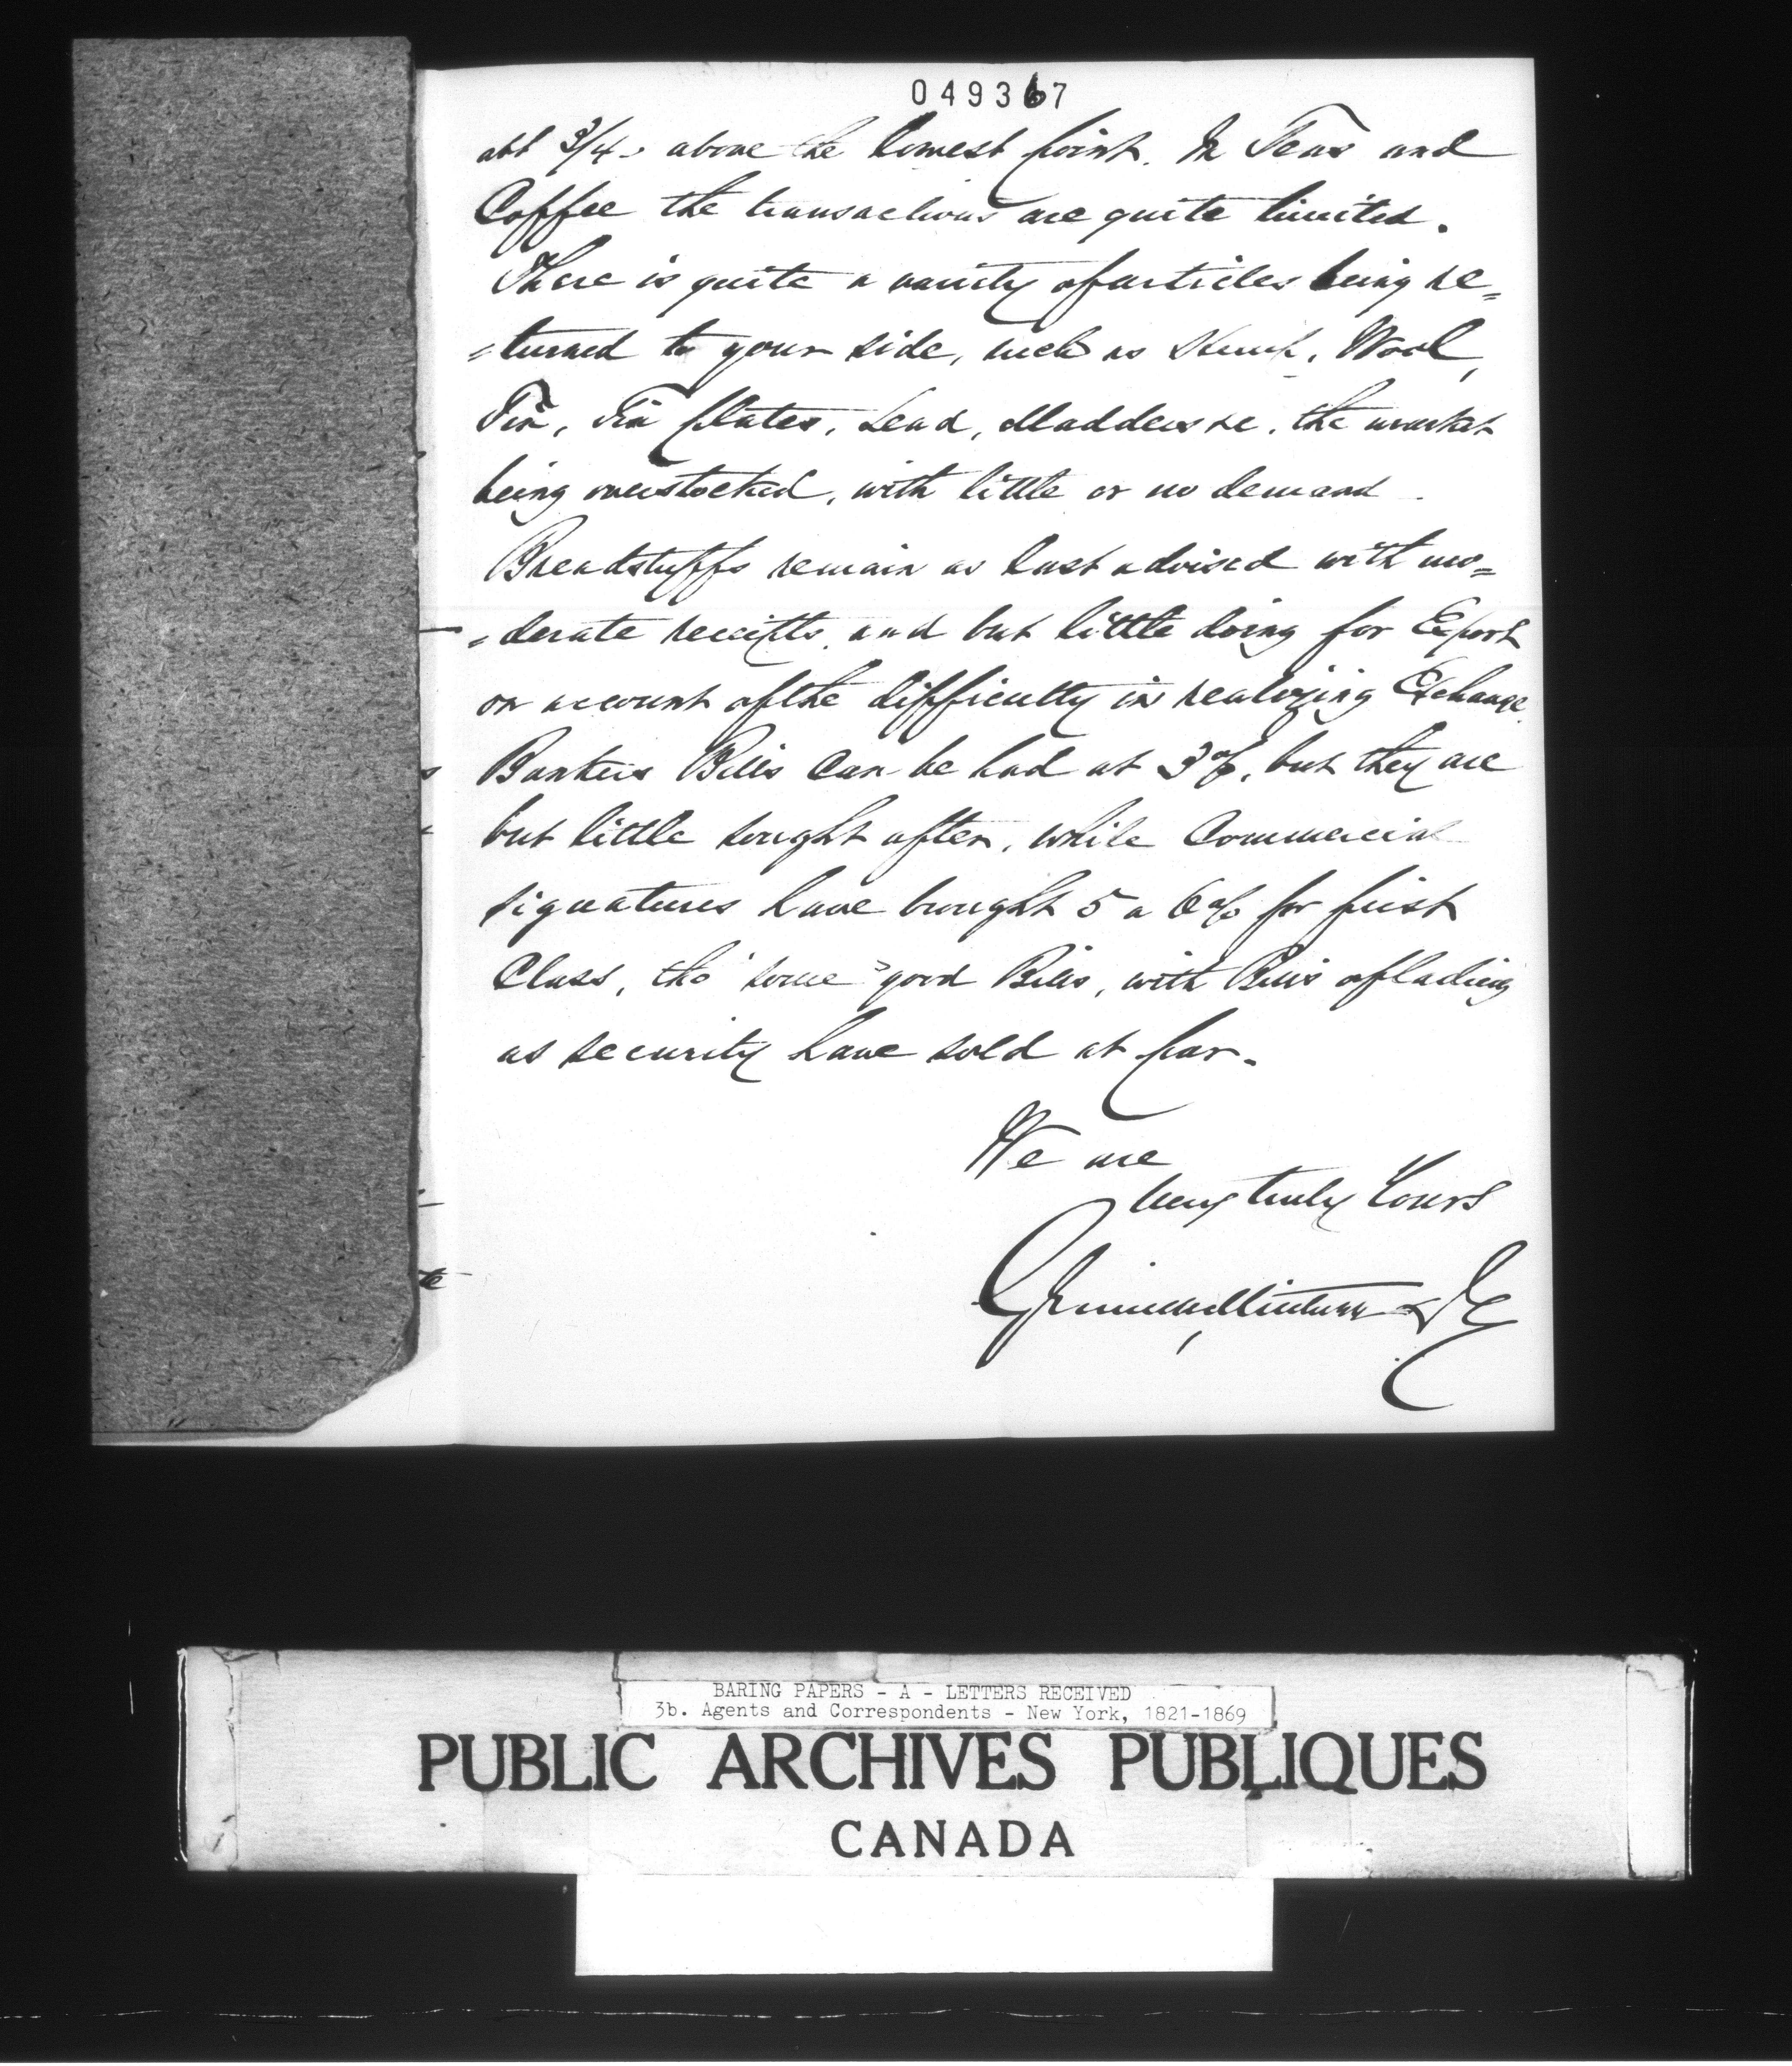 049367
abt 3/4 - above the lowest point. In Teas and
Coffee the transactions are quite limited.
There is quite a variety of articles being re=
=turned to your side, such as Hemp, Wool,
Tin, Tin plates, Lead, Madders &c. the market
being overstocked, with little or no demand -
Breadstuffs remain as last advised with mo=
=derate receipts, and but little doing for Export
on account of the difficulty in realizing Exchange.
Bankers Bills can be had at 3%, but they are
but little sought after, while Commercial
signatures have brought 5 a 6% for first
Class, tho' some "good Bills, with Bills of lading
as security have sold at par.
We are
Very truly Yours
Grinnell Minturn & Co
te
BARING PAPERS - A - LETTERS RECEIVED
3b. Agents and Correspondents - New York, 1821-1869
PUBLIC ARCHIVES PUBLIQUES
CANADA